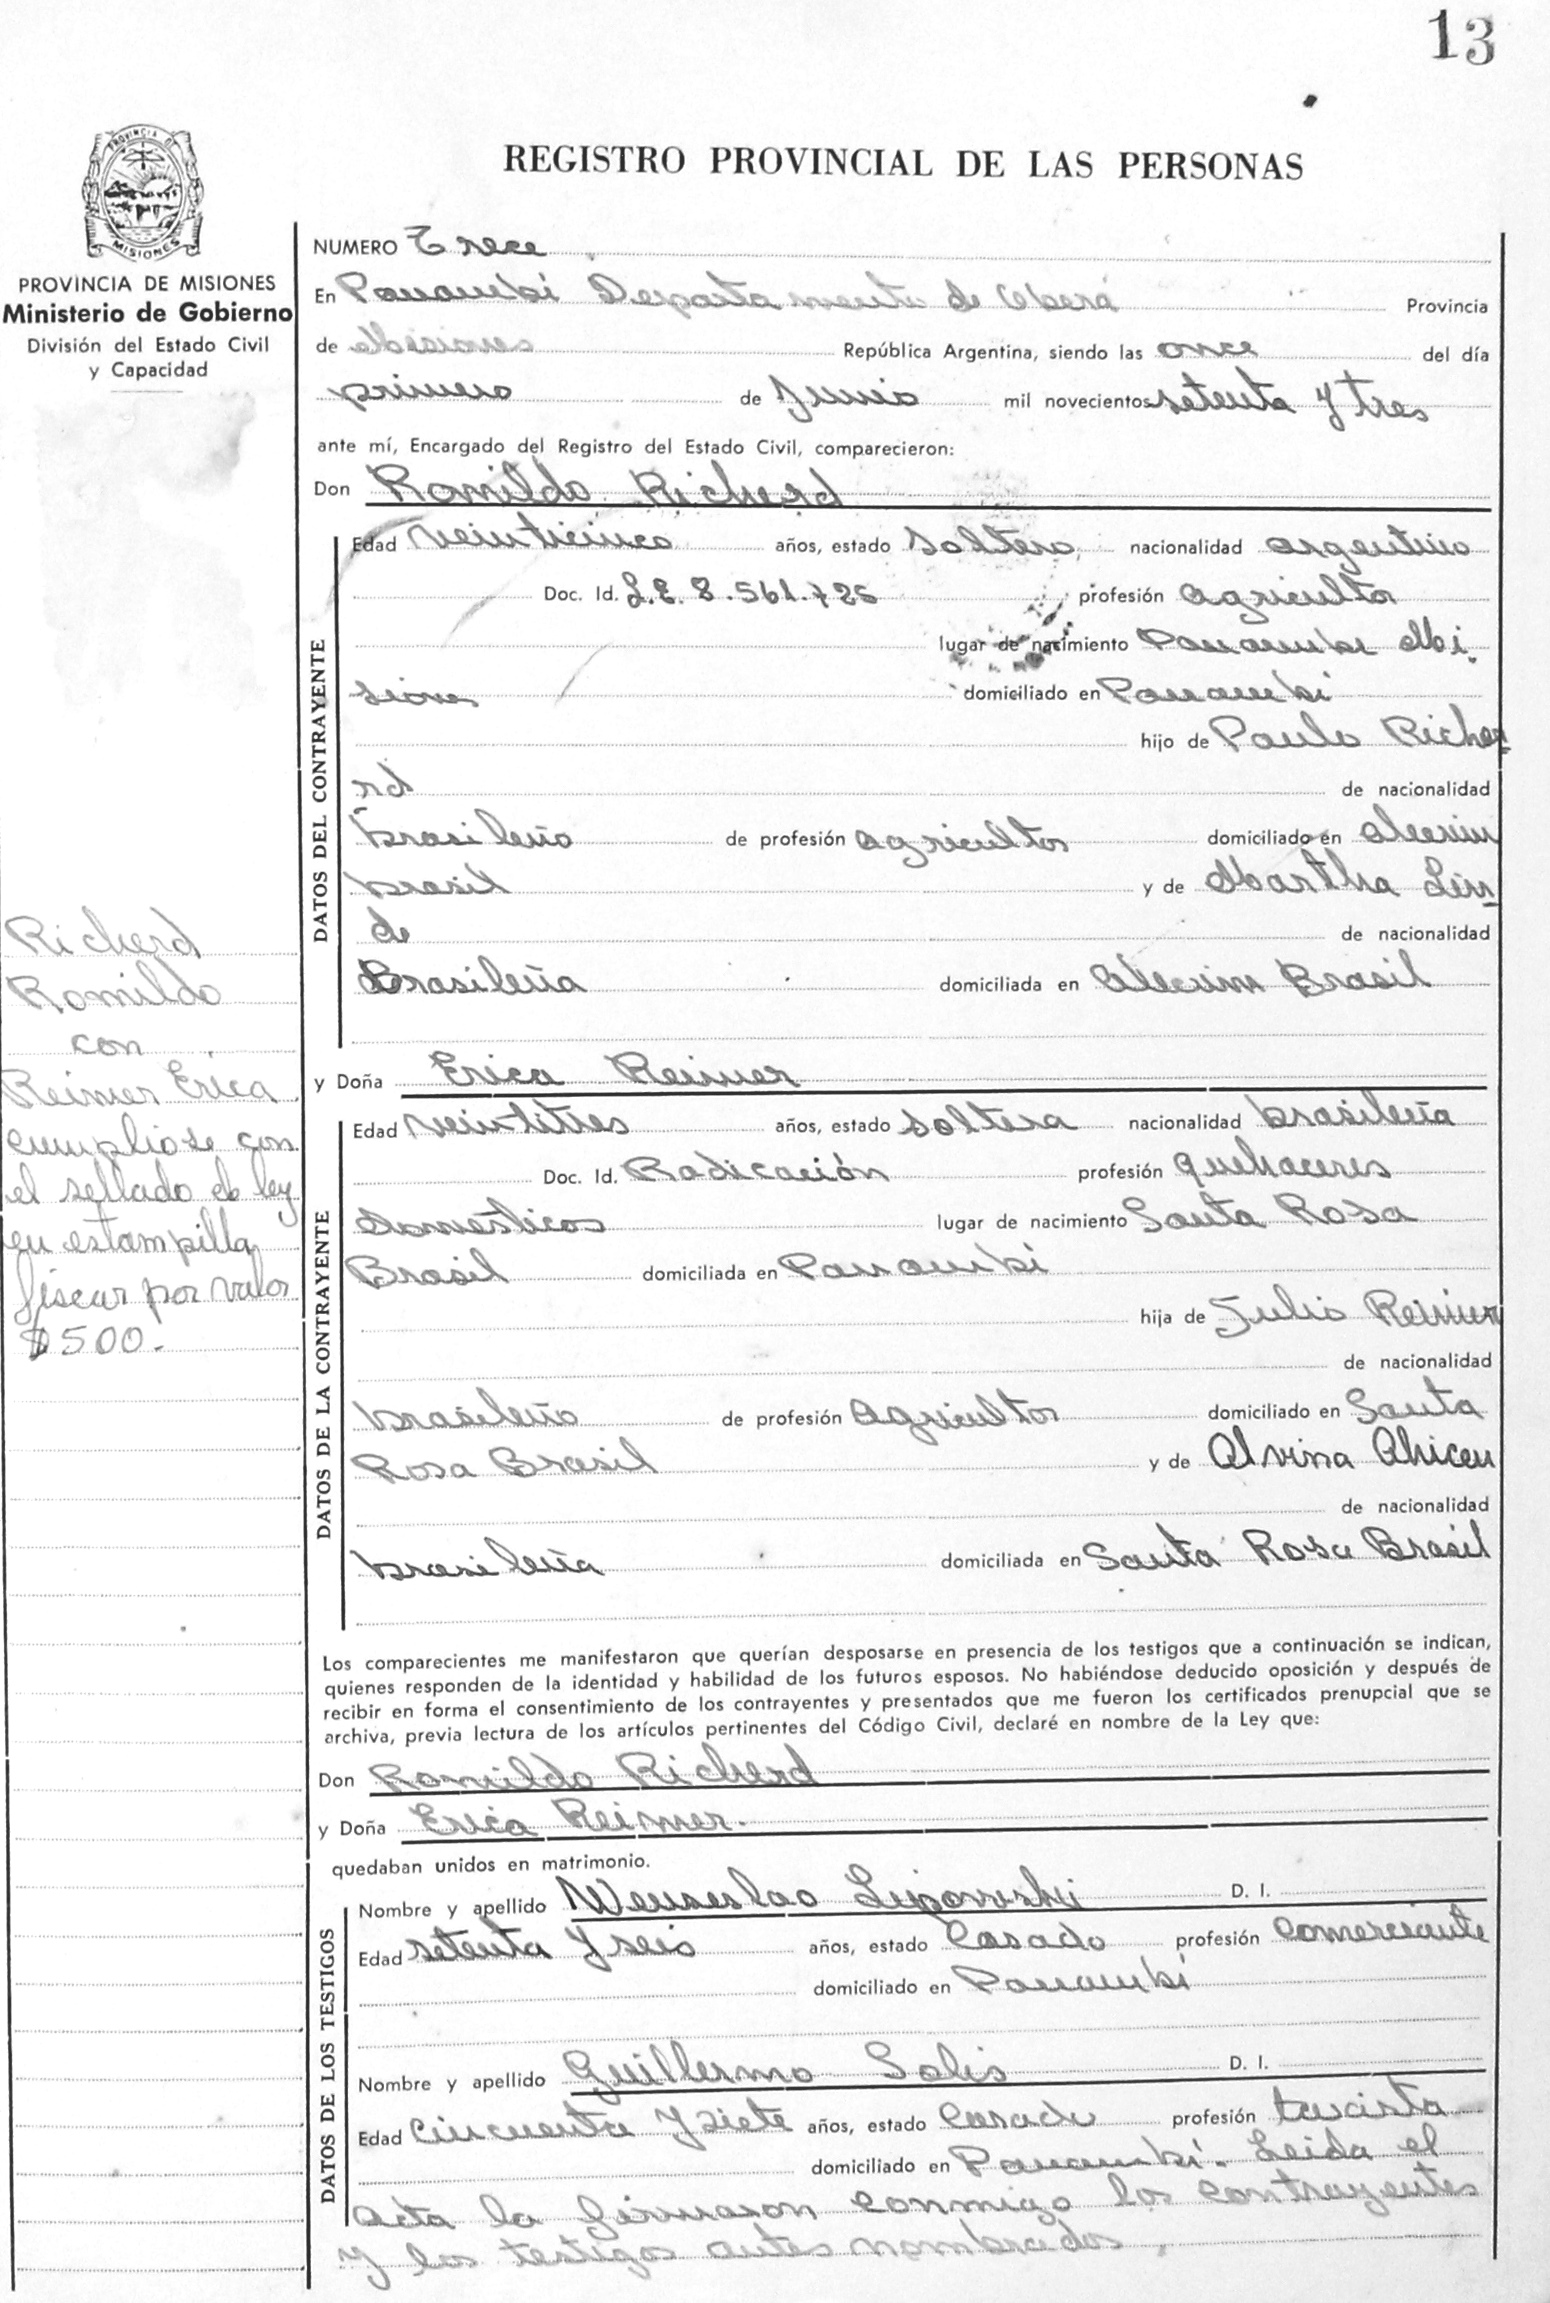 13
PROVINCIA DE
MISIONES
PROVINCIA DE MISIONES
Ministerio de Gobierno
División del Estado Civil
y Capacidad
REGISTRO PROVINCIAL DE LAS PERSONAS
NUMERO Trece
En Panambí Departamento de Oberá Provincia
de Misiones República Argentina, siendo las once del día
primero de Junio mil novecientos setenta y tres
ante mí, Encargado del Registro del Estado Civil, comparecieron:
Don Romildo Richerd
DATOS DEL CONTRAYENTE
Edad veinticinco años, estado soltero, nacionalidad argentino
Doc. Id. L.E. 8.561.725 profesión agricultor
lugar de nacimiento Panambí Mi-
siones domiciliado en Panambí
hijo de Paulo Riche-
rd de nacionalidad
brasileño de profesión agricultor domiciliado en Alecrim
brasil y de Martha Lin-
de de nacionalidad
Brasileña domiciliada en Alecrim Brasil
y Doña Erica Reimer
DATOS DE LA CONTRAYENTE
Edad veintitres años, estado soltera nacionalidad brasileña
Doc. Id. Radicación profesión quehaceres
domésticos lugar de nacimiento Santa Rosa
Brasil domiciliada en Panambí
hija de Julio Reimer
de nacionalidad
brasileño de profesión agricultor domiciliado en Santa
Rosa Brasil y de Alvina
de nacionalidad
brasileña domiciliada en Santa Rosa Brasil
Richerd
Romildo
con
Reimer Erica
cumpliose con
el sellado de ley
en estampilla
fiscar por valor
$500.-
Los comparecientes me manifestaron que querían desposarse en presencia de los testigos que a continuación se indican,
quienes responden de la identidad y habilidad de los futuros esposos. No habiéndose deducido oposición y después de
recibir en forma el consentimiento de los contrayentes y presentados que me fueron los certificados prenupcial que se
archiva, previa lectura de los artículos pertinentes del Código Civil, declaré en nombre de la Ley que:
Don Romildo Richerd
y Doña Erica Reimer.
quedaban unidos en matrimonio.
DATOS DE LOS TESTIGOS
Nombre y apellido Wenseslao Lipowski D. I.
Edad setenta y seis años, estado Casado profesión comerciante
domiciliado en Panambí
Nombre y apellido Guillermo Solis D. I.
Edad cincuenta y siete años, estado Casado profesión
domiciliado en Panambí. Leida el
acta la firmaron conmigo los contrayentes
y los testigos antes nombrados.